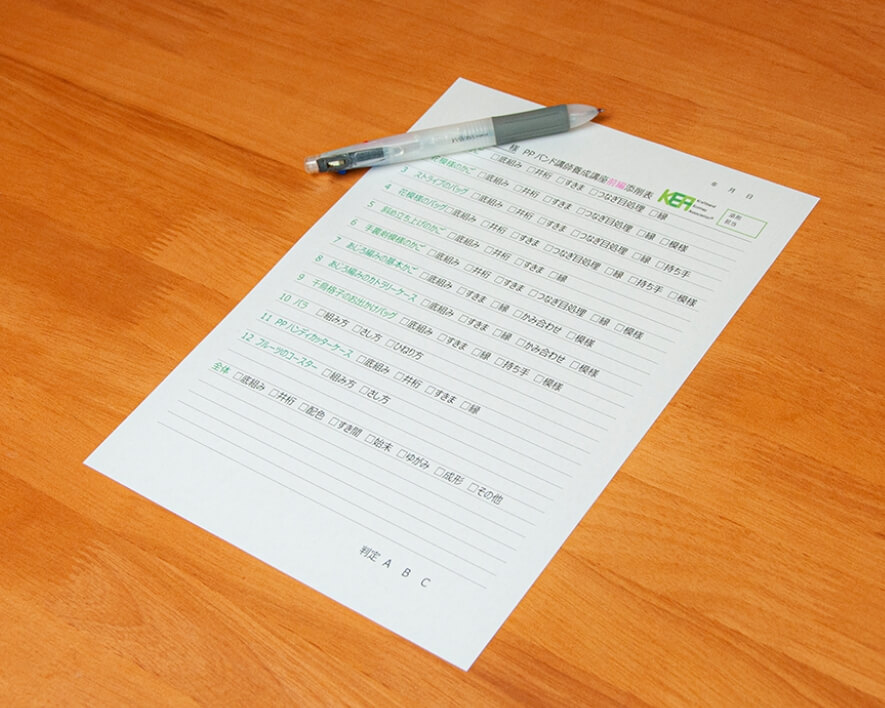 様 PPバンド講師養成講座前編添削表
年 月 日
KEA
添削
担当
□底組み □井桁 □すきま □つなぎ目処理 □縁
花模様のかご □底組み □井桁 □すきま □つなぎ目処理 □縁 □模様
3 ストライプのバッグ □底組み □井桁 □すきま □つなぎ目処理 □縁 □持ち手
4 花模様のバッグ □底組み □井桁 □すきま □つなぎ目処理 □縁 □持ち手 □模様
5 斜め立ち上げのかご □底組み □井桁 □すきま □縁
6 手裏剣模様のかご □底組み □井桁 □すきま □つなぎ目処理 □縁 □模様
7 あじろ編みの基本かご □底組み □すきま □縁 □かみ合わせ □模様
8 あじろ編みのカトラリーケース □底組み □すきま □縁 □かみ合わせ □模様
9 千鳥格子のお出かけバッグ □底組み □すきま □縁 □持ち手 □模様
10 バラ □組み方 □さし方 □ひねり方
11 PPハンディカッターケース □底組み □井桁 □すきま □縁
12 フルーツのコースター □組み方 □さし方
全体 □底組み □井桁 □配色 □すき間 □始末 □ゆがみ □成形 □その他
判定 A B C